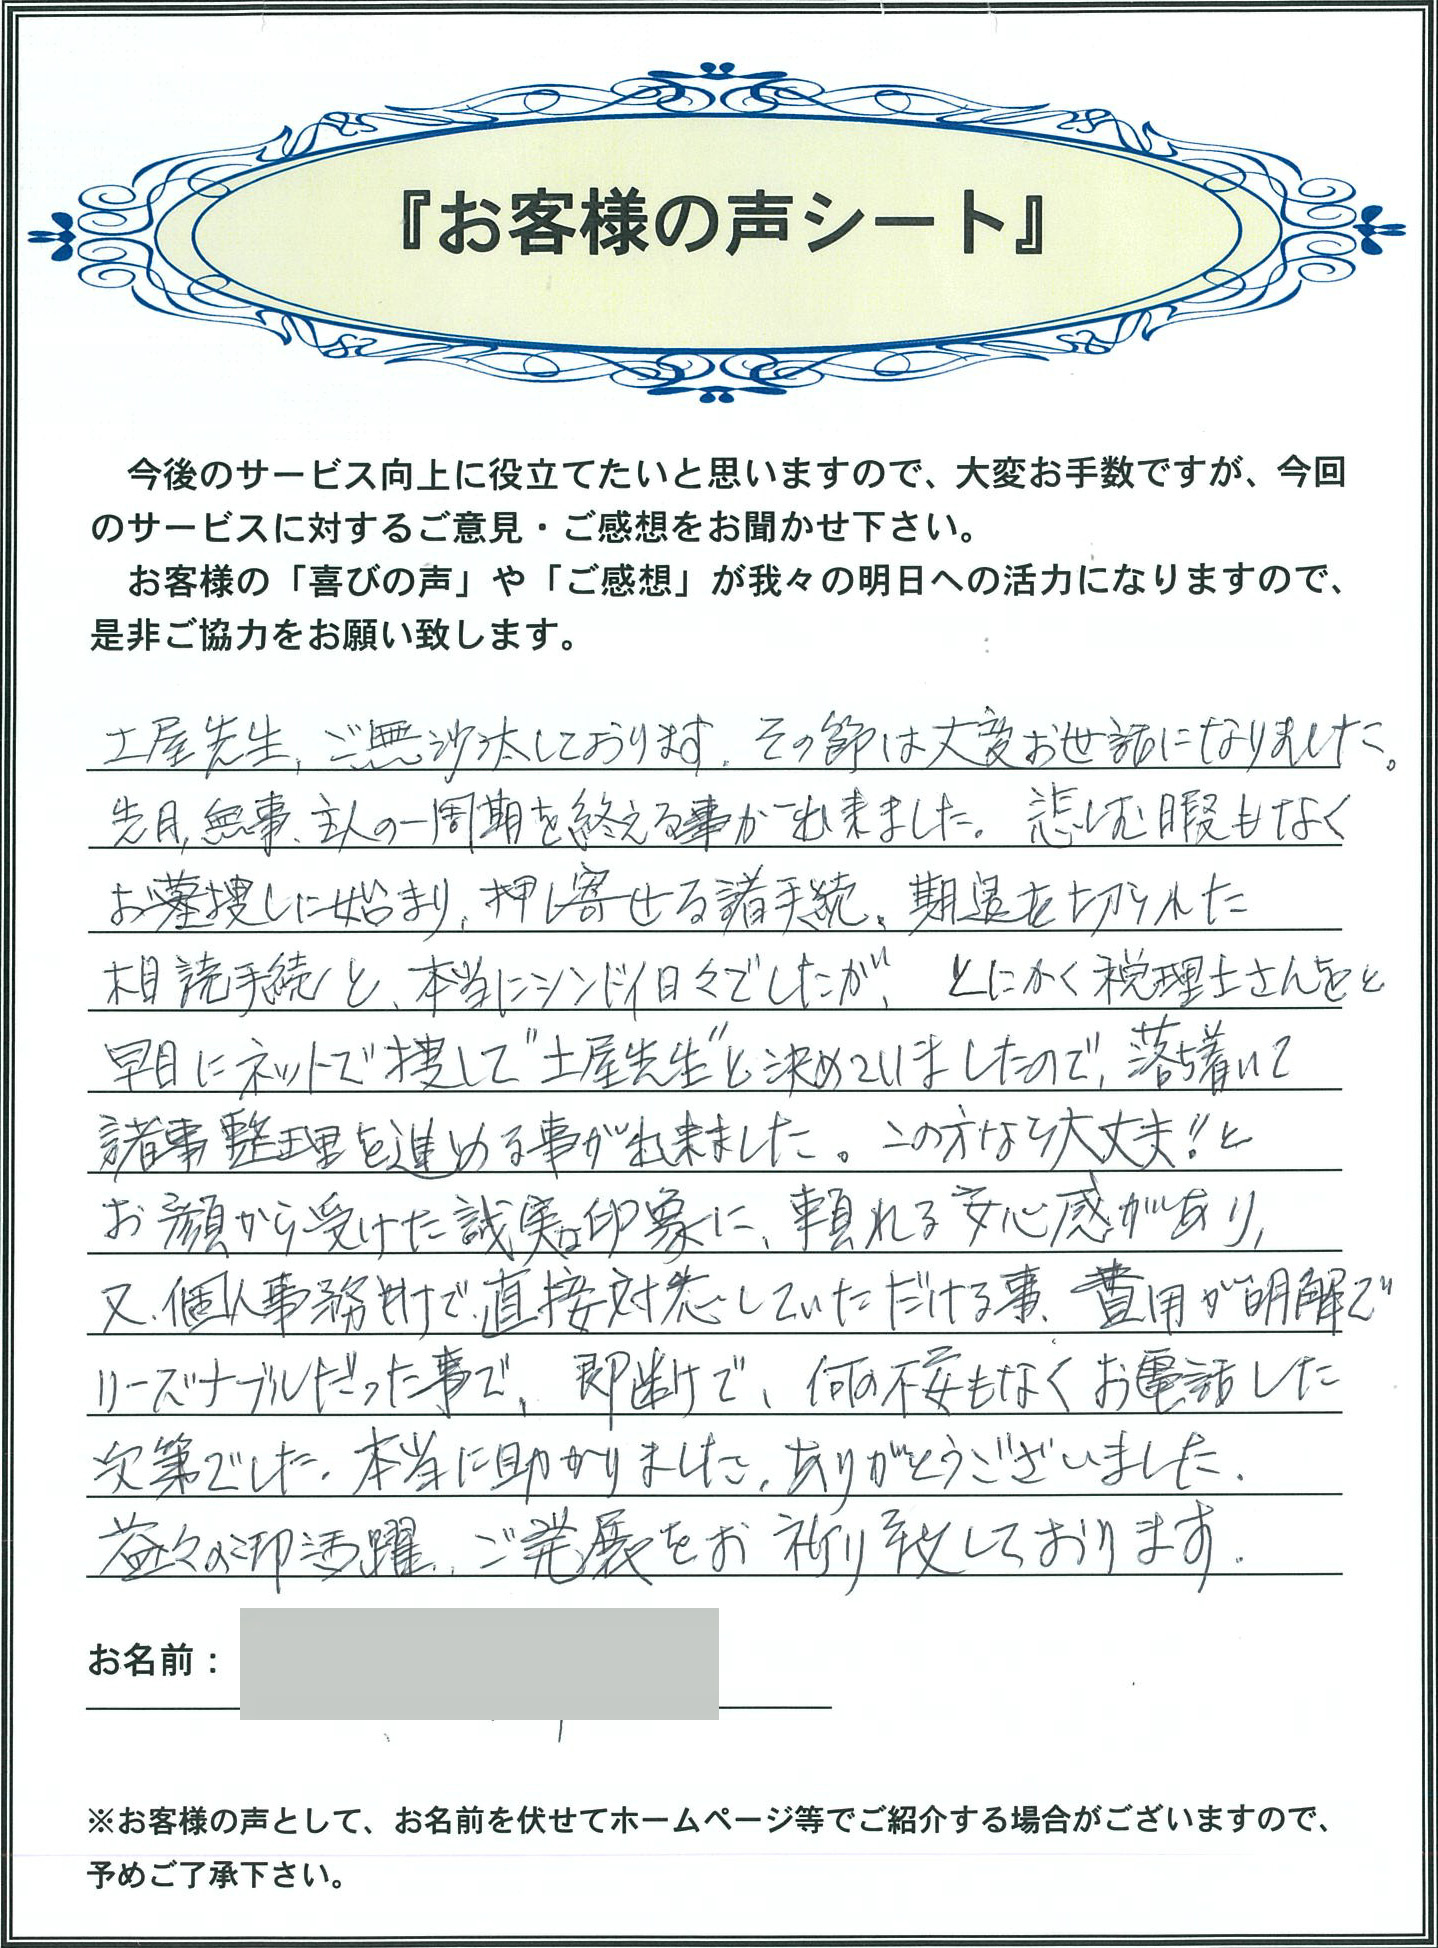 『お客様の声シート』
今後のサービス向上に役立てたいと思いますので、大変お手数ですが、今回
のサービスに対するご意見・ご感想をお聞かせ下さい。
お客様の「喜びの声」や「ご感想」が我々の明日への活力になりますので、
是非ご協力をお願い致します。
土屋先生、ご無沙汰しております。その節は大変お世話になりました。
先月、無事、主人の一周期を終える事が出来ました。悲しむ暇もなく
お墓捜しに始まり、押し寄せる諸手続、期限を切られた
相続手続と、本当にシンドイ日々でしたが、とにかく税理士さんをと
早目にネットで捜して"土屋先生"と決めていましたので、落ち着いて
諸事整理を進める事が出来ました。この方なら大丈夫!!と
お顔から受けた誠実な印象に、頼れる安心感があり、
又、個人事務所で、直接対応していただける事、費用が明解で
リーズナブルだった事で、即断で、何の不安もなくお電話した
次第でした。本当に助かりました。ありがとうございました。
益々の御活躍、ご発展をお祈り致しております。
お名前：
※お客様の声として、お名前を伏せてホームページ等でご紹介する場合がございますので、
予めご了承下さい。